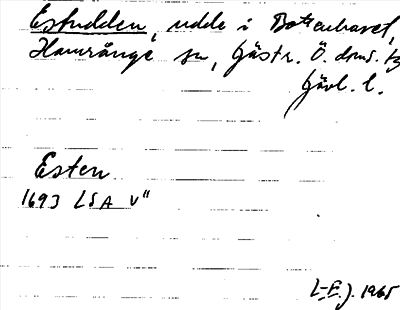 Estudden, udde i Bottenhavet,
Hamrånge sn, Gästr. Ö. doms.
Gävl. l.
Esten
1693 LSA V"
L-E.J. 1965